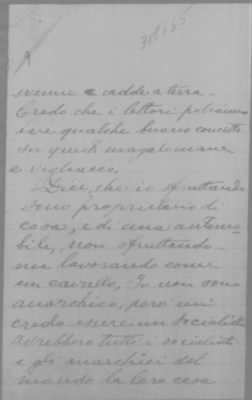 9
308655
svenne e cadde a terra.
Credo che i lettori potranno
qualche buono concetto
su questi magalomane
e vigliacco.
- Dice, che io sfruttando
sono proprietario di
casa, e di una automo
bile, non sfruttando
ma lavorando come
un cavallo, Io non sono
anarchico, però mi
credo essere un socialista
tutti i socialisti
e gli anarchici del
mondo la loro casa